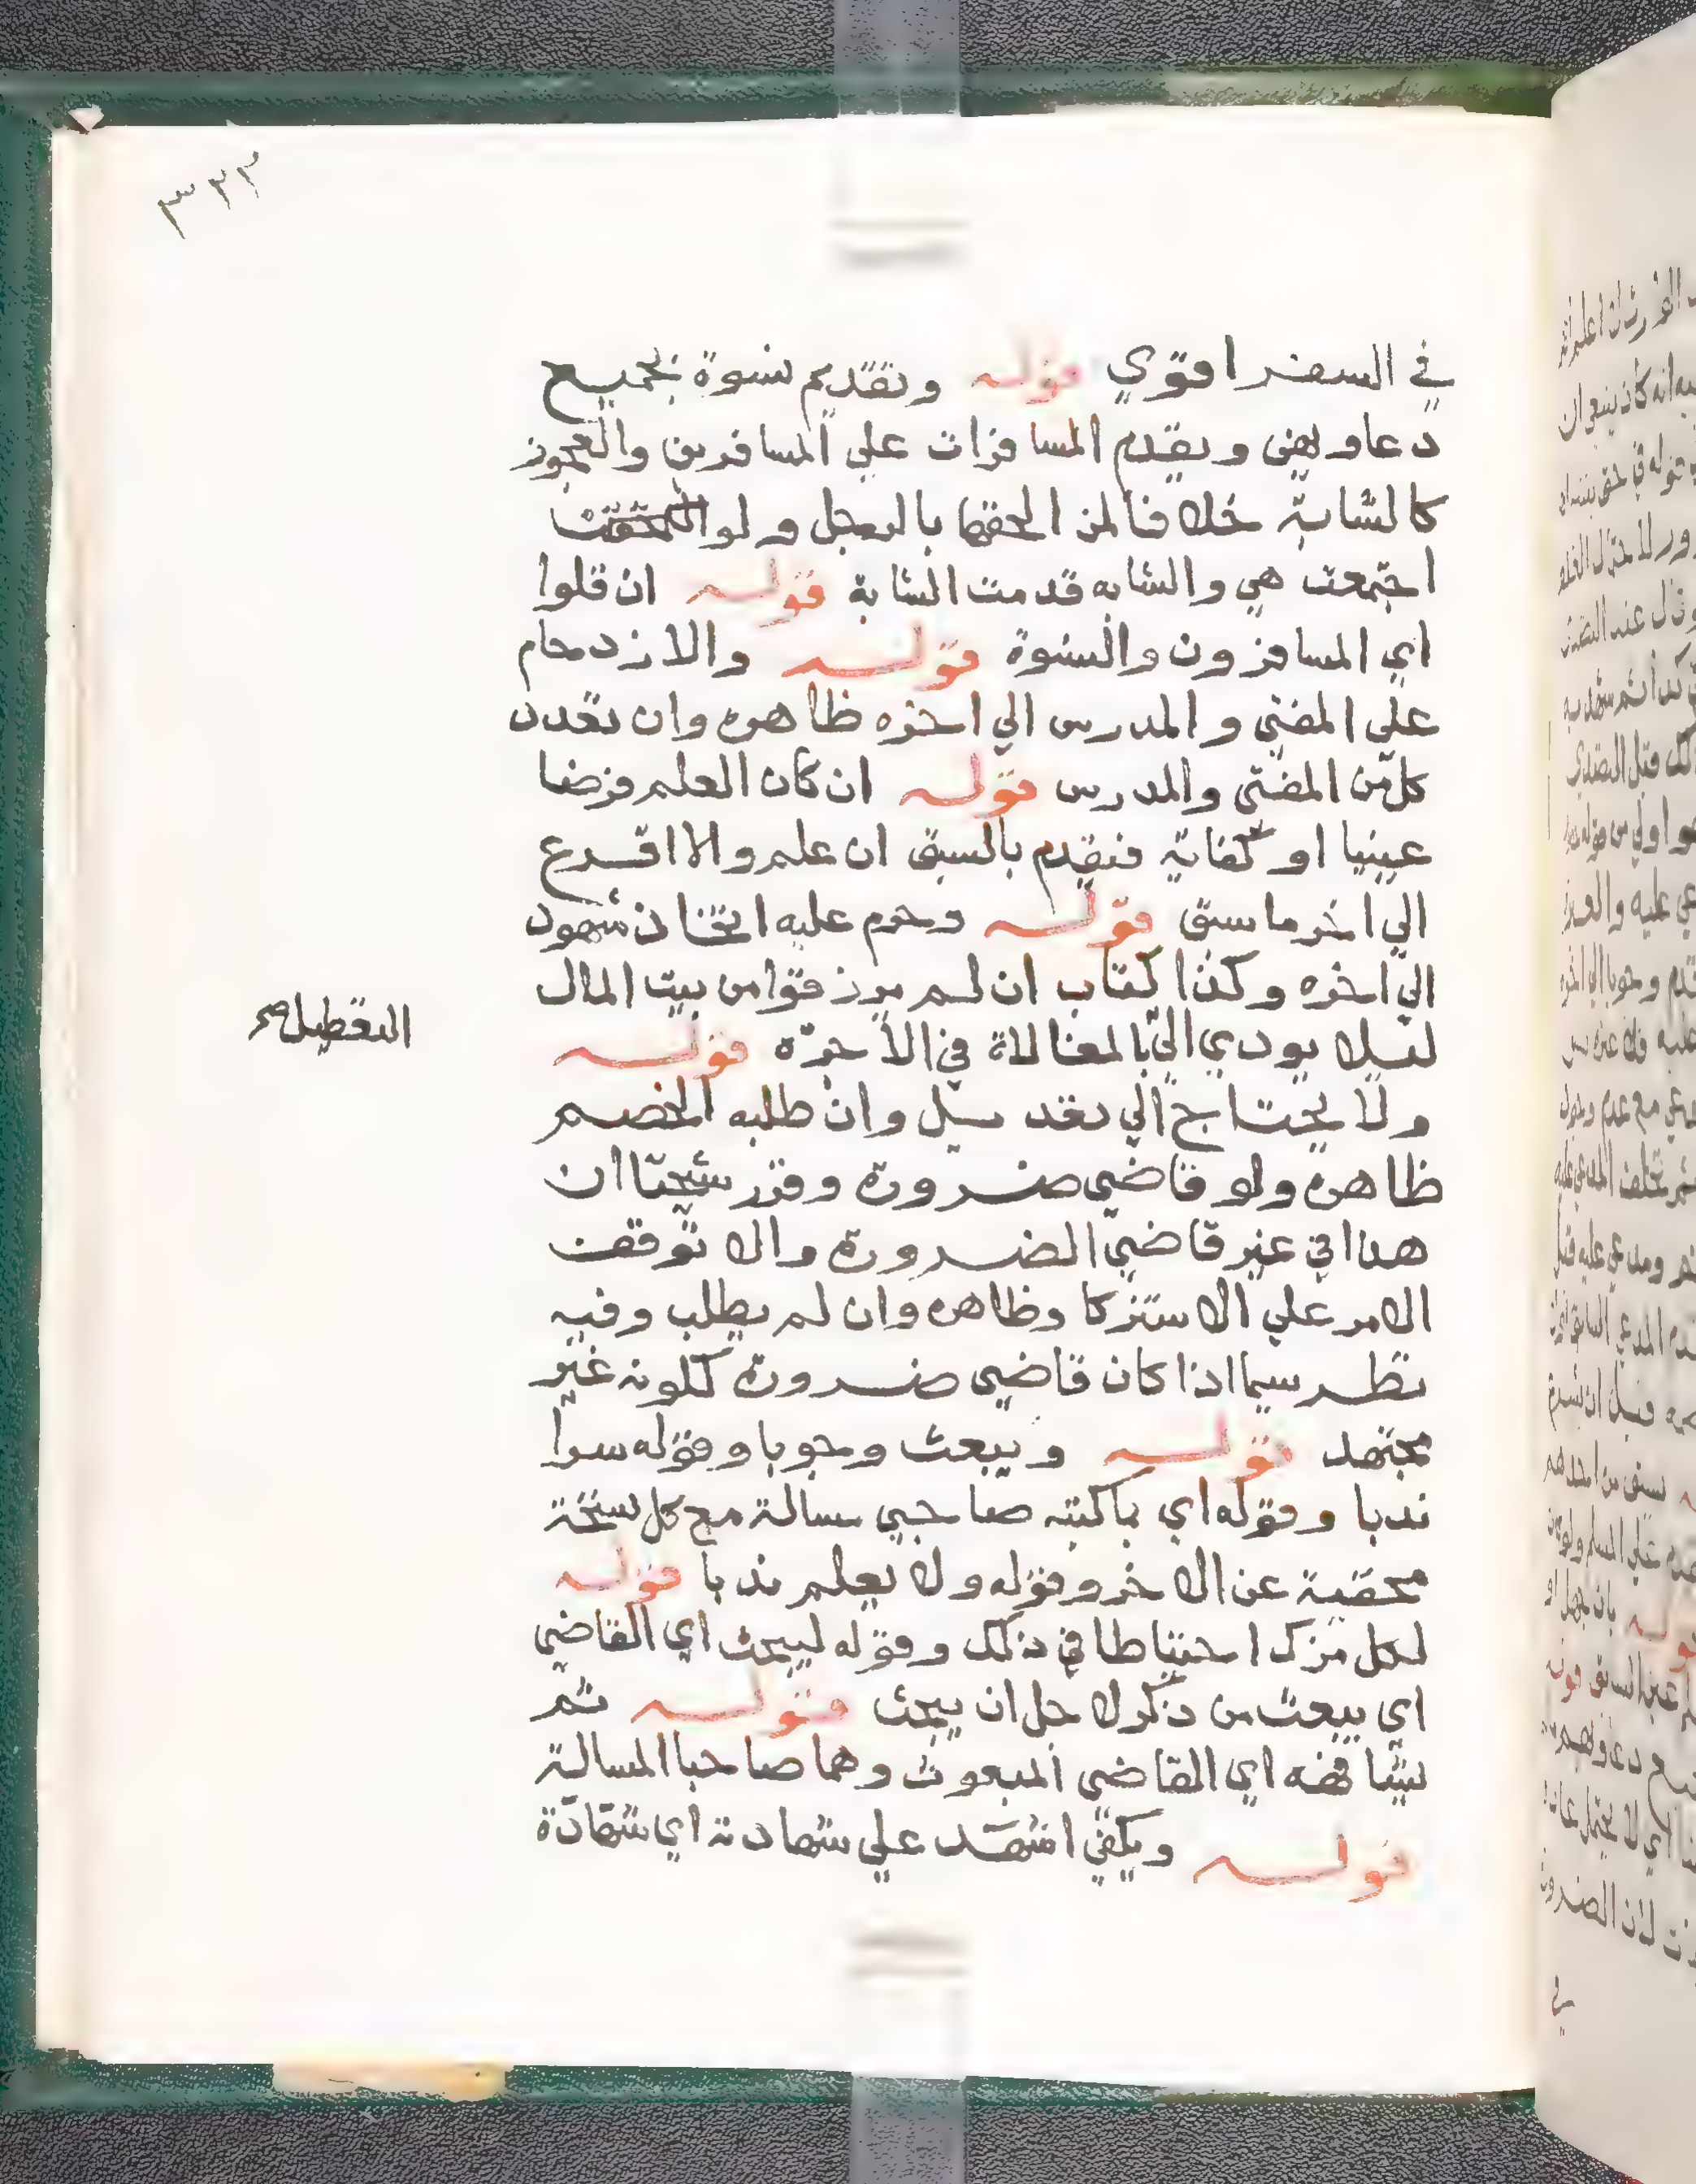 ٣٢٢
في السفر اقوي قوله ونقديم نسوة بجميع
دعاويهن ويقدم المسافرات علي المسافرين والعجوز
كالشابة خلافا لمن الحقها بالرجل ولو
اجتمعت هي والشابه قدمت الشابة قوله ان قلوا
اي المسافرون والنسوة قوله والازدحام
علي المفتي والمدرس الي اخره ظاهره وان تعدد
كل من المفتي والمدرس قوله ان كان العلم فرضا
عينيا او كفاية فيقدم بالسبق ان علم والا اقرع
الي اخر ما سبق قوله وحرم عليه اتخاذ شهود
الي اخره وكذا كتاب ان لم يرزقوا من بيت المال
ليلا يودي الي بالمغالاة في الاجرة قوله
التعطيل صح
ولا يحتاج الي بعد وان طلبه الخصم
ظاهره ولو قاضي ضرورة وقرر شيخنا ان
هذا في غير قاضي الضرورة والا توقف
الامر علي الاستزكا وظاهره وان لم يطلب وفيه
نظر سيما اذا كان قاضي ضرورة ككونه غير
مجتهد قوله ويبعث وجوبا وقوله سرا
ندبا وقوله اي بما كتبه صاحبي مسالة مع كل نسخة
مخفية عن الاخر وقوله ولا يعلم ندبا قوله
لكل مزك احتياطا في ذلك وقوله ليبحث اي القاضي
اي يبعث من ذكر لاجل ان يبحث قوله ثم
يشافهه اي القاضي المبعوث وهما صاحبا المسالة
قوله ويكفي اشهد علي شهادته اي شهادة